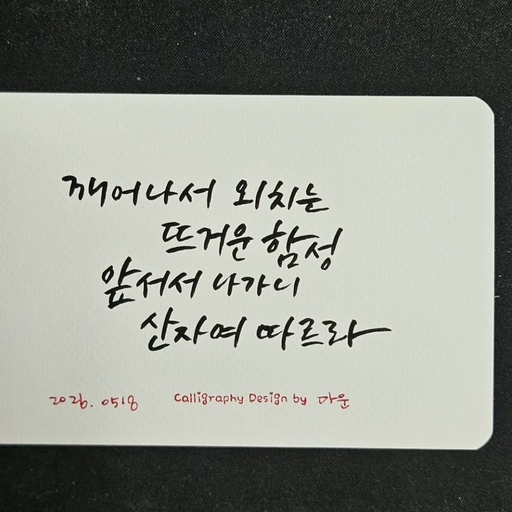 깨어나서 외치는
뜨거운 함성
앞서서 나가니
산자여 따르라
2026. 0518 Calligraphy Design by 다운